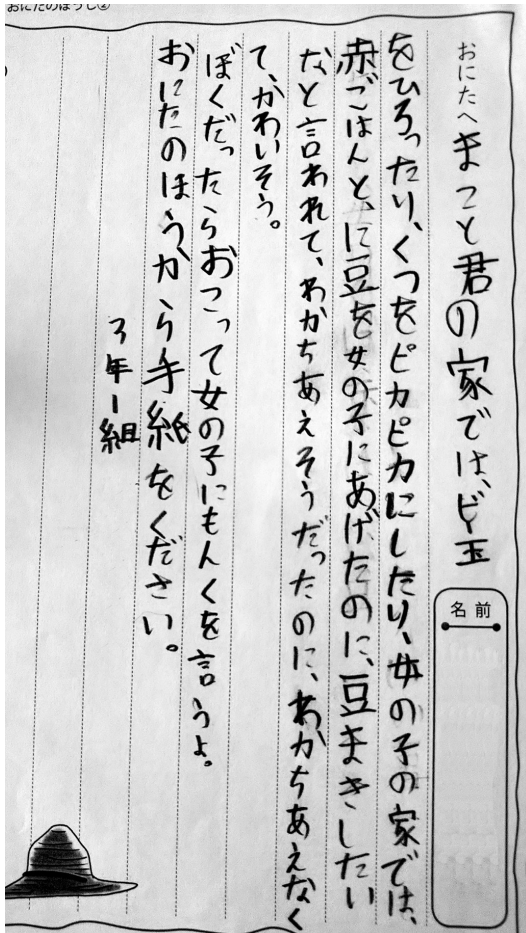 おにたのぼうし②
おにたへまこと君の家では、ビー玉
名前
をひろったり、くつをピカピカにしたり、女の子の家では、
赤ごはんと、に豆を女の子にあげたのに、豆まきしたい
なと言われて、わかちあえそうだったのに、わかちあえなく
て、かわいそう。
ぼくだったらおこって女の子にもんくを言うよ。
おにたのほうから手紙をください。
3年1組